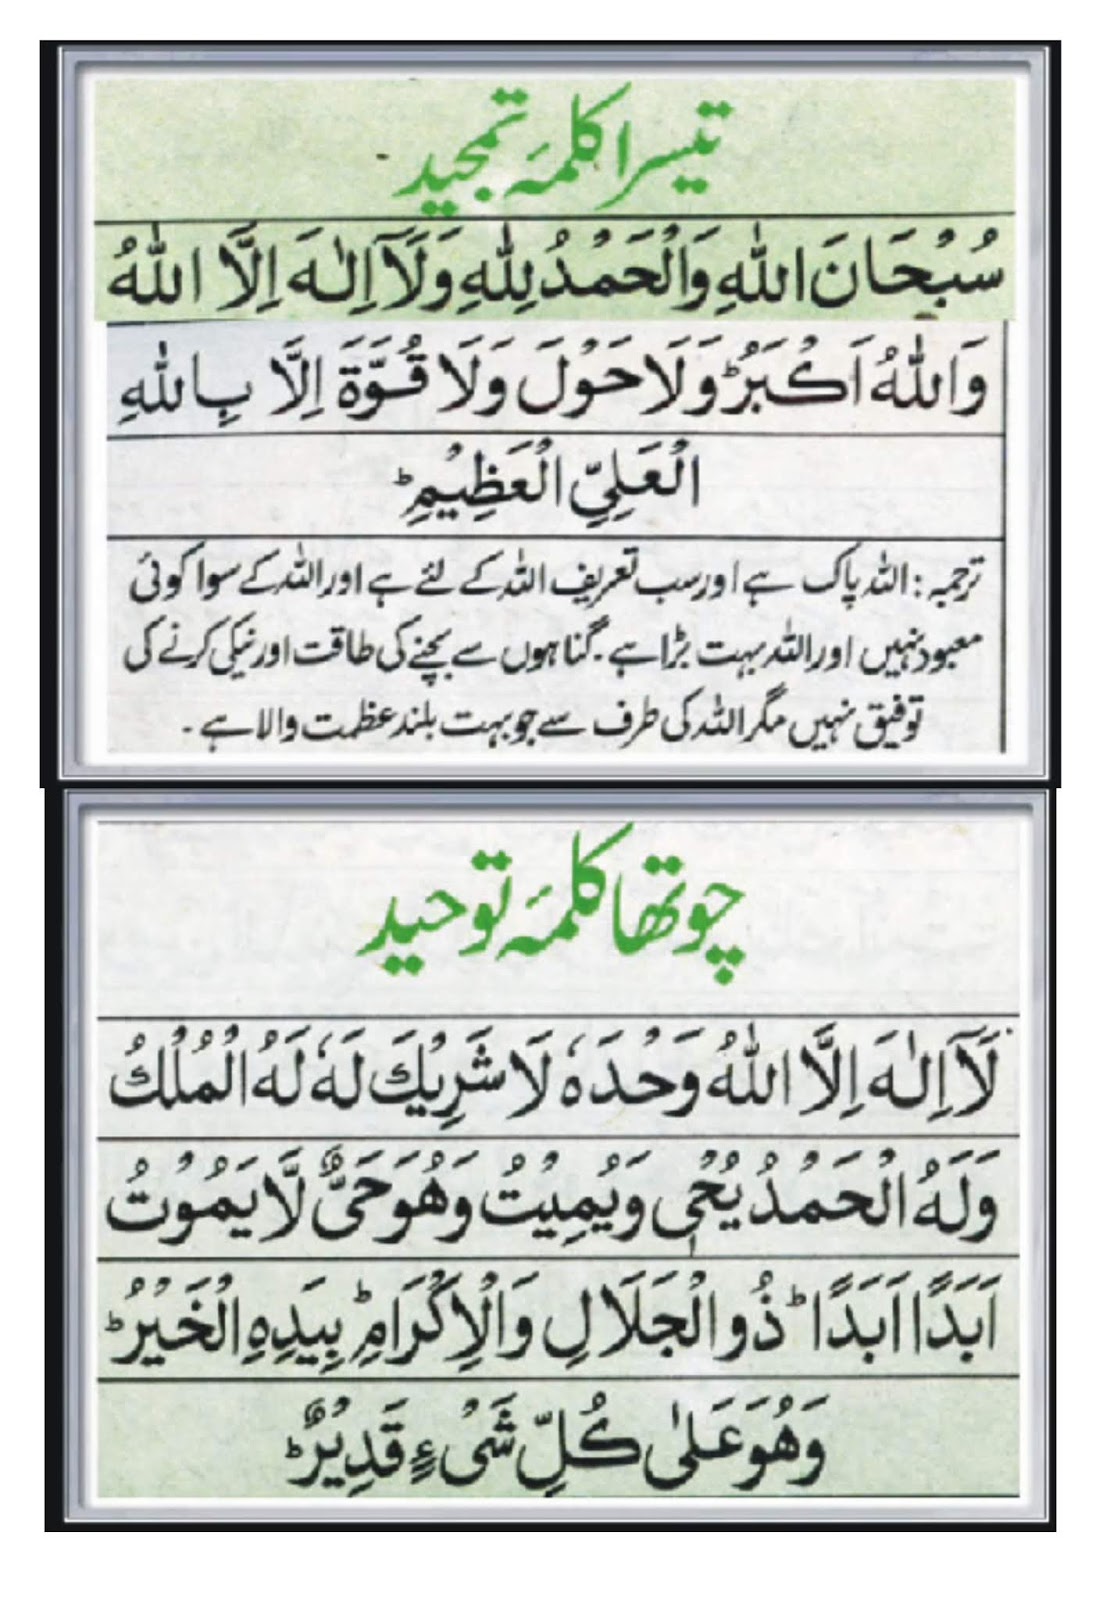 تیسرا کلمۂ تمجید
سُبْحَانَ اللّٰهِ وَالْحَمْدُ لِلّٰهِ وَلَآ اِلٰهَ اِلَّا اللّٰهُ
وَاللّٰهُ اَكْبَرُ ؕ وَلَا حَوْلَ وَلَا قُوَّةَ اِلَّا بِاللّٰهِ
الْعَلِيِّ الْعَظِيْمِ ؕ
ترجمہ: اللہ پاک ہے اور سب تعریف اللہ کے لئے ہے اور اللہ کے سوا کوئی
معبود نہیں اور اللہ بہت بڑا ہے۔ گناہوں سے بچنے کی طاقت اور نیکی کرنے کی
توفیق نہیں مگر اللہ کی طرف سے جو بہت بلند عظمت والا ہے۔
چوتھا کلمۂ توحید
لَآ اِلٰهَ اِلَّا اللّٰهُ وَحْدَهٗ لَا شَرِيْكَ لَهٗ لَهُ الْمُلْكُ
وَلَهُ الْحَمْدُ يُحْيٖ وَيُمِيْتُ وَهُوَ حَيٌّ لَّا يَمُوْتُ
اَبَدًا اَبَدًا ؕ ذُو الْجَلَالِ وَالْاِكْرَامِ ؕ بِيَدِهِ الْخَيْرُ ؕ
وَهُوَ عَلٰى كُلِّ شَىْءٍ قَدِيْرٌ ؕ